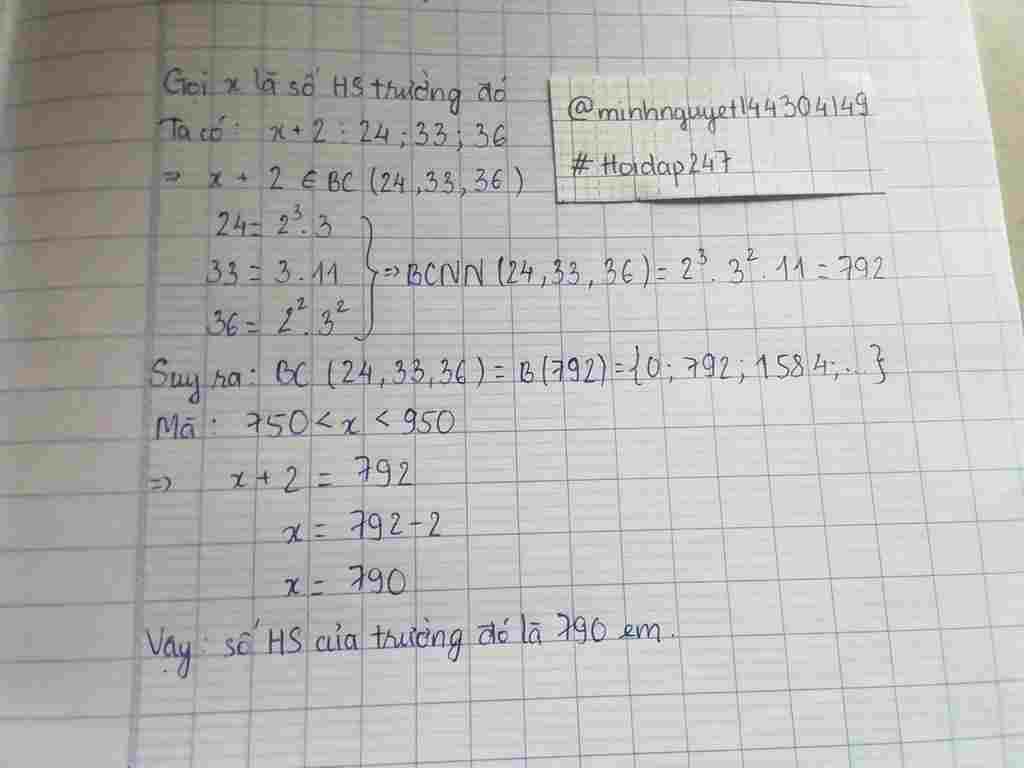 Gọi x là số HS trường đó
Ta có: x + 2 ⋮ 24 ; 33 ; 36
⇒ x + 2 ∈ BC (24, 33, 36)
24 = 2³ . 3
33 = 3 . 11
36 = 2² . 3²
} ⇒ BCNN (24, 33, 36) = 2³ . 3² . 11 = 792
Suy ra: BC (24, 33, 36) = B(792) = {0; 792; 1584; ...}
Mà: 750 < x < 950
⇒ x + 2 = 792
x = 792 - 2
x = 790
Vậy: số HS của trường đó là 790 em.
@minhnguyet144304149
# Hoidap247